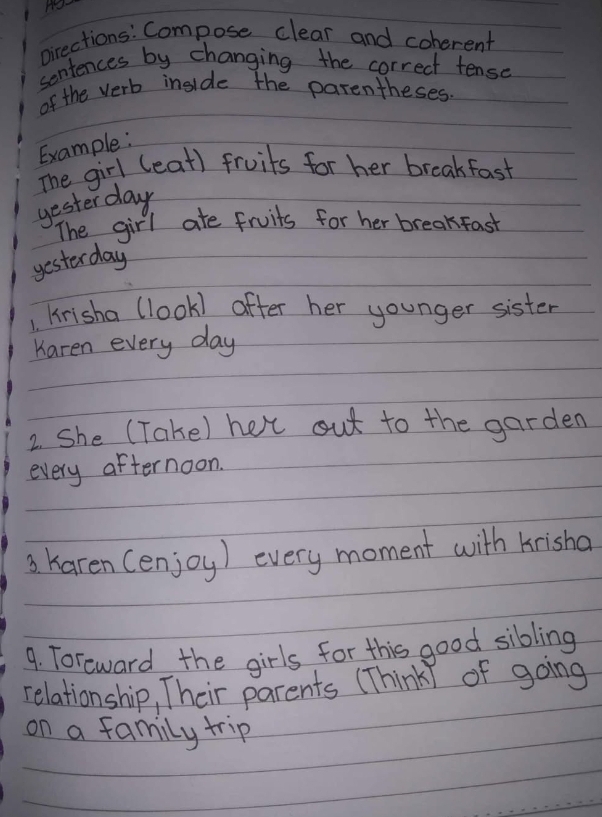 Directions: Compose clear and coherent
sentences by changing the correct tense
of the verb inside the parentheses.
Example:
The girl (eat) fruits for her breakfast
yesterday
The girl ate fruits for her breakfast
yesterday
1. Krisha (look) after her younger sister
Karen every day
2. She (Take) her out to the garden
every afternoon.
3. Karen (enjoy) every moment with Krisha
4. Toreward the girls for this good sibling
relationship, Their parents (Think) of going
on a family trip